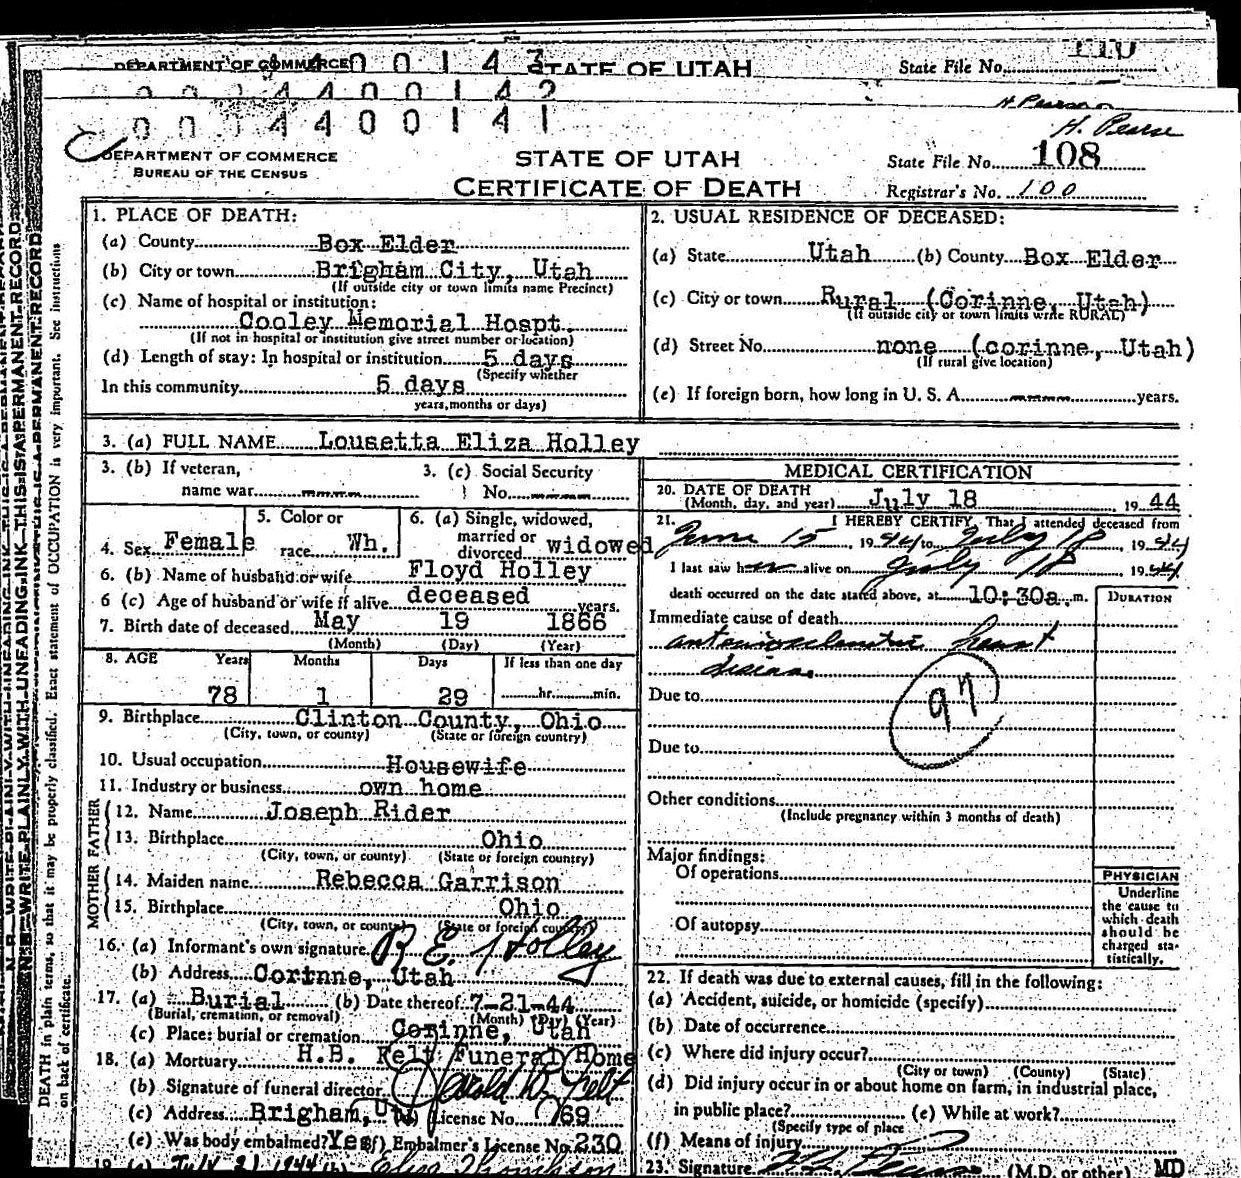 DEPARTMENT OF COMMERCE 4400143 STATE OF UTAH State File No. 110
0004400142
0004400141
H. Pearse
DEPARTMENT OF COMMERCE
BUREAU OF THE CENSUS
STATE OF UTAH
CERTIFICATE OF DEATH
State File No. 108
Registrar's No. 100
1. PLACE OF DEATH:
(a) County Box Elder
(b) City or town Brigham City, Utah
(If outside city or town limits name Precinct)
(c) Name of hospital or institution:
Cooley Memorial Hospt.
(If not in hospital or institution give street number or location)
(d) Length of stay: In hospital or institution 5 days
(Specify whether
In this community 5 days
years, months or days)
2. USUAL RESIDENCE OF DECEASED:
(a) State Utah (b) County Box Elder
(c) City or town Rural (Corinne, Utah)
(If outside city or town limits write RURAL)
(d) Street No. none (corinne, Utah)
(If rural give location)
(e) If foreign born, how long in U. S. A. ---- years.
3. (a) FULL NAME Lousetta Eliza Holley
3. (b) If veteran,
name war ----
3. (c) Social Security
No. ----
4. Sex Female
5. Color or
race Wh.
6. (a) Single, widowed,
married or
divorced widowed
6. (b) Name of husband or wife Floyd Holley
6 (c) Age of husband or wife if alive deceased years.
7. Birth date of deceased May 19 1866
(Month) (Day) (Year)
8. AGE Years Months Days If less than one day
78 1 29 hr. min.
9. Birthplace Clinton County, Ohio
(City, town, or county) (State or foreign country)
10. Usual occupation Housewife
11. Industry or business own home
FATHER
12. Name Joseph Rider
13. Birthplace Ohio
(City, town, or county) (State or foreign country)
MOTHER
14. Maiden name Rebecca Garrison
15. Birthplace Ohio
(City, town, or county) (State or foreign country)
16. (a) Informant's own signature R. E. Holley
(b) Address Corinne, Utah
17. (a) Burial (b) Date thereof 7-21-44
(Burial, cremation, or removal) (Month) (Day) (Year)
(c) Place: burial or cremation Corinne, Utah
18. (a) Mortuary H.B. Felt Funeral Home
(b) Signature of funeral director Harold B. Felt
(c) Address Brigham, Ut License No. 769
(e) Was body embalmed? Yes (f) Embalmer's License No. 230
19. (a) July 21 1944 (b)
MEDICAL CERTIFICATION
20. DATE OF DEATH
(Month, day, and year) July 18 1944
21. I HEREBY CERTIFY, That I attended deceased from
June 15, 1944 to July 18, 1944
I last saw her alive on July 18 1944
death occurred on the date stated above, at 10:30a.m.
DURATION
Immediate cause of death
arteriosclerotic heart
disease
97
Due to
Due to
Other conditions
(Include pregnancy within 3 months of death)
Major findings:
Of operations
Of autopsy
PHYSICIAN
Underline
the cause to
which death
should be
charged sta-
tistically.
22. If death was due to external causes, fill in the following:
(a) Accident, suicide, or homicide (specify)
(b) Date of occurrence
(c) Where did injury occur?
(City or town) (County) (State)
(d) Did injury occur in or about home on farm, in industrial place,
in public place? (e) While at work?
(Specify type of place
(f) Means of injury
23. Signature (M.D. or other) MD
N. B.—WRITE PLAINLY WITH UNFADING INK—THIS IS A PERMANENT RECORD
DEATH in plain terms, so that it may be properly classified. Exact statement of OCCUPATION is very important. See instructions
on back of certificate.